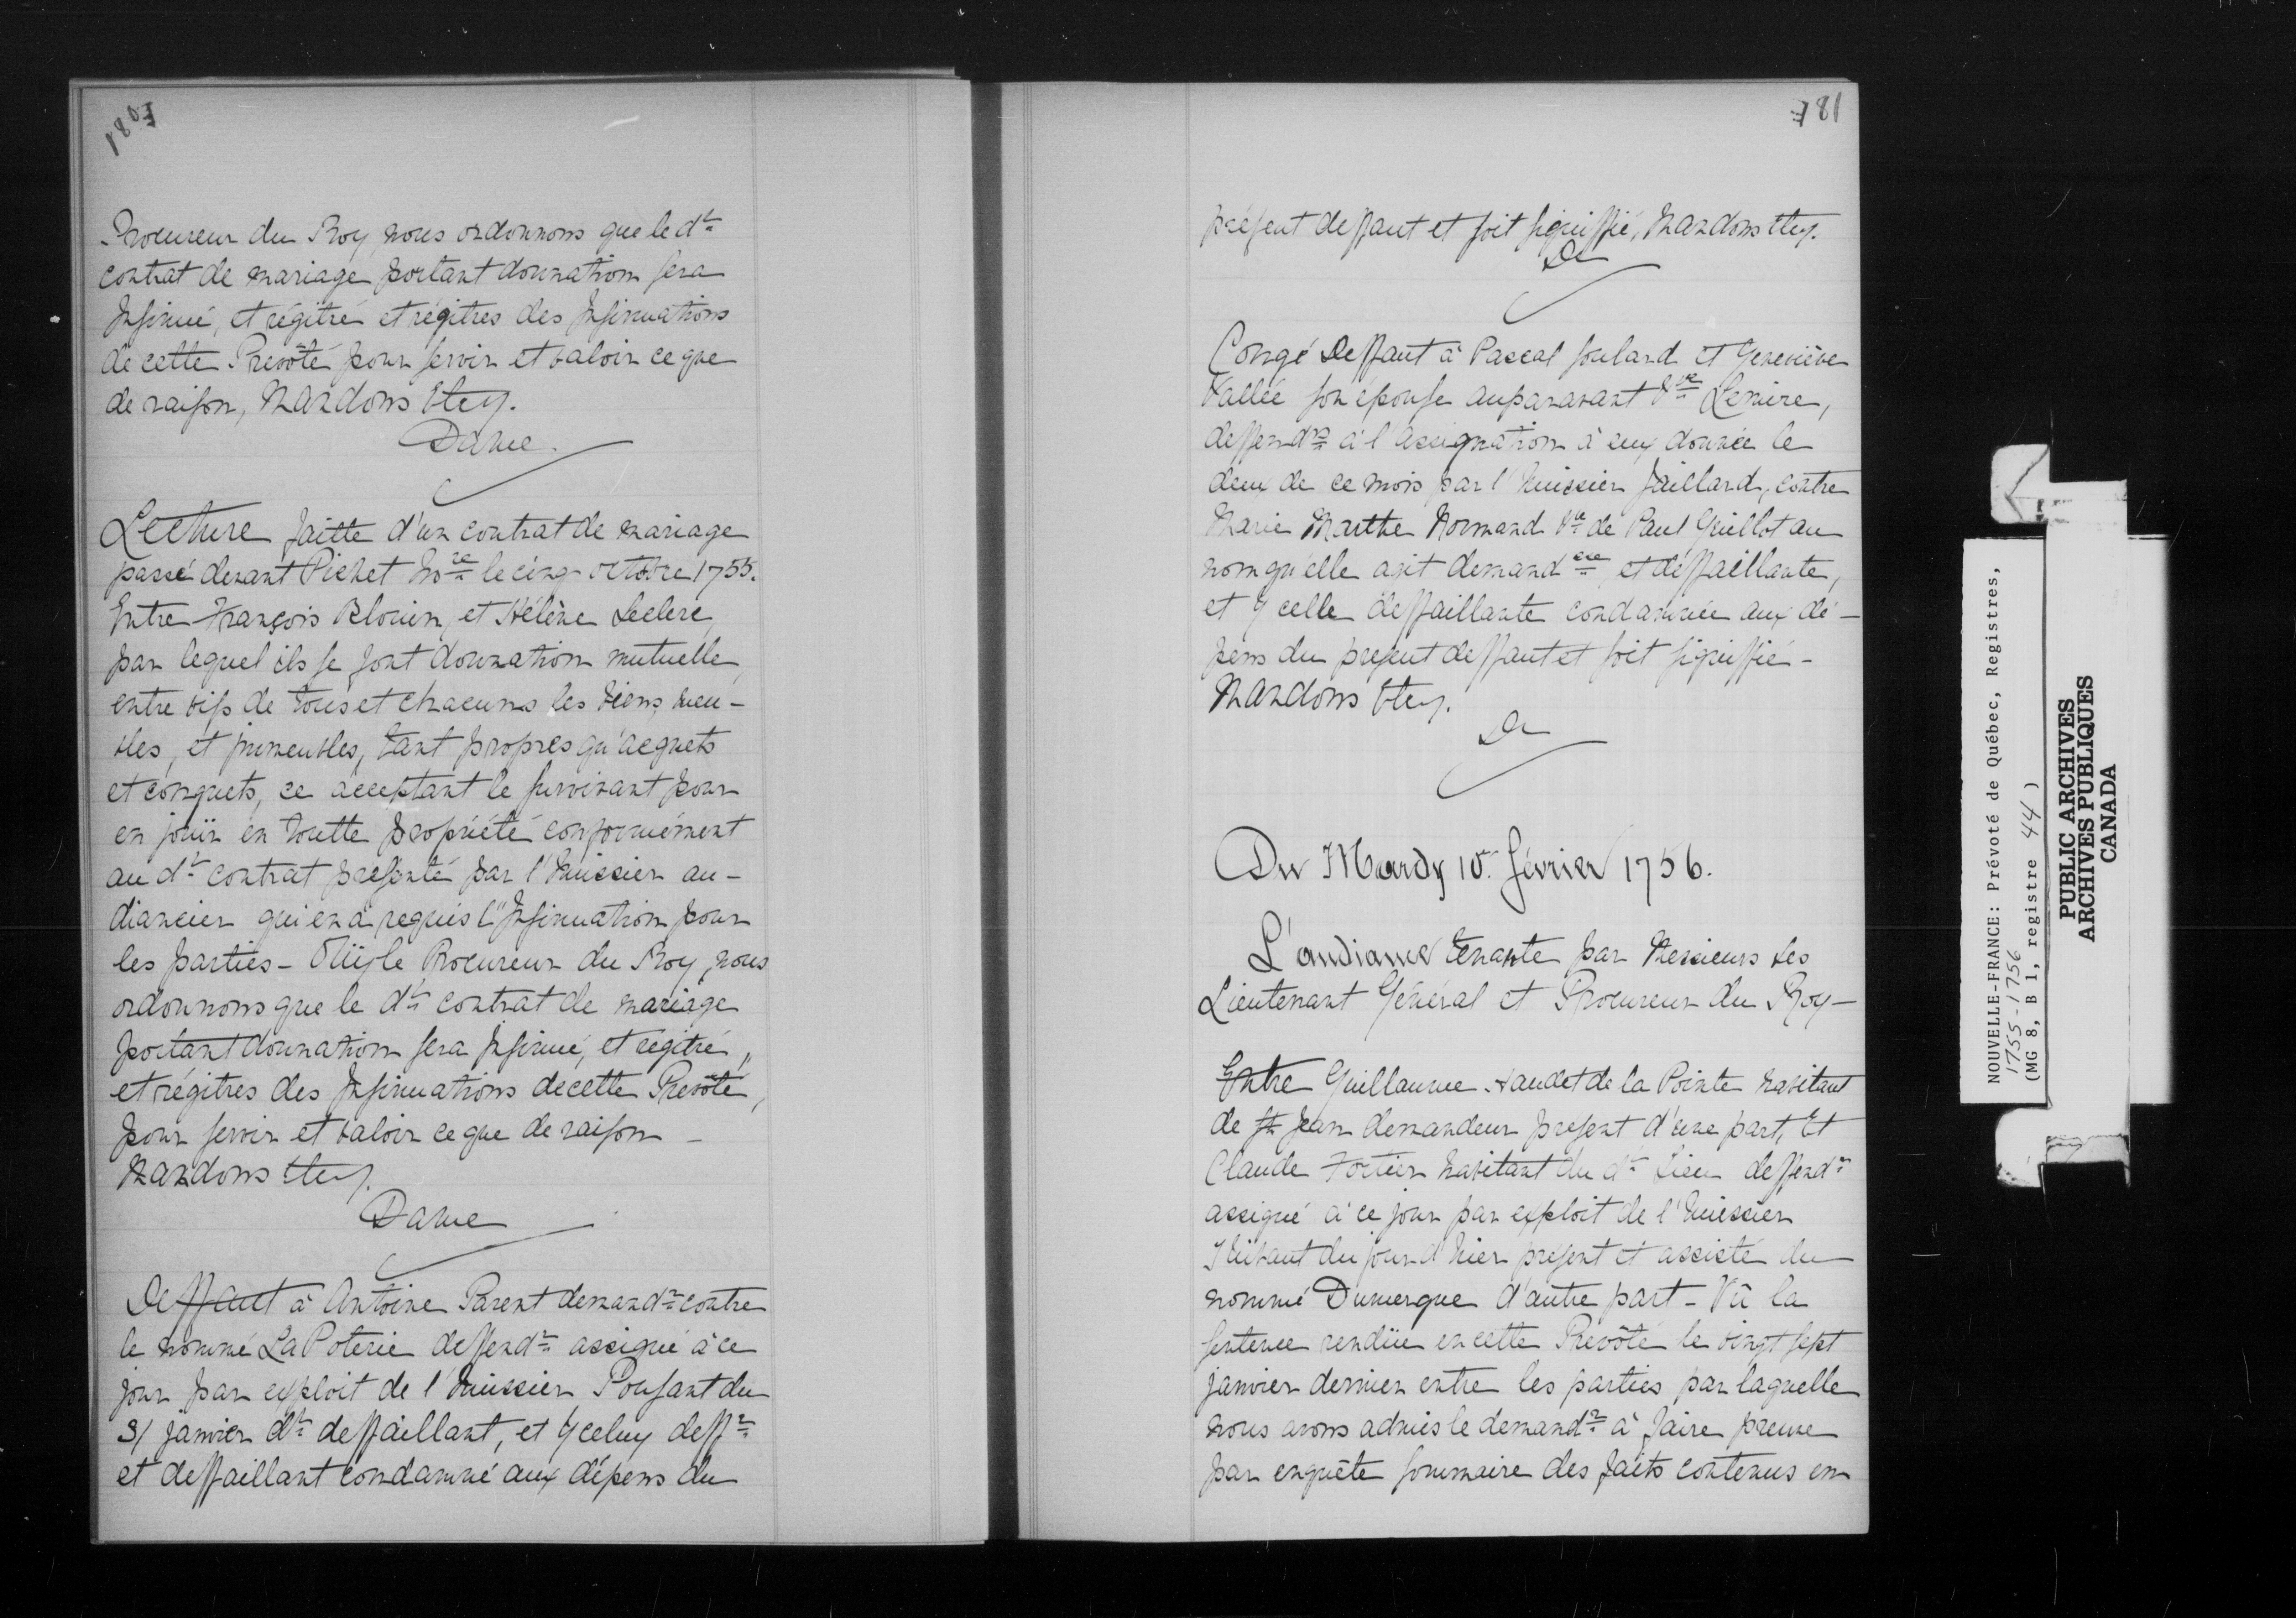 180
Procureur du Roy, nous ordonnons que le dt
contrat de mariage portant donnation sera
Insinué, et régitré et régitres des Insinuations
de cette Prevôté pour servir et valoir ce que
de raison, Mandons Etcy.
Daine.
Lecture faitte d'un contrat de mariage
passé devant Pichet Nore le cinq octobre 1755.
Entre François Blouin, et Hélène Leclerc,
par lequel ils se font donnation mutuelle,
entre vifs de tous et chacuns les biens meu-
bles, et immeubles, tant propres qu'acquets
et conquets, ce acceptant le survivant pour
en jouïr en toutte propriété conformément
au dt contrat présenté par l'huissier au-
diancier qui en a requis l'Insinuation pour
les parties - Oüy le Procureur du Roy, nous
ordonnons que le dt contrat de mariage
portant donnation sera Insinué, et régitré,
et régitres des Insinuations de cette Prevôté,
pour servir et valoir ce que de raison -
Mandons Etcy.
Daine
Deffaut à Antoine Parent demandr contre
le nommé La Poterie deffendr assigné à ce
jour par exploit de l'huissier Poussant du
31 janvier dt deffaillant, et Yceluy deffr
et deffaillant condamné aux dépens du
181
présent deffaut et soit signiffié, Mandons Etcy.
De
Congé Deffaut à Pascal Soulard et Geneviève
Vallée son épouse auparavant Vve Lemire,
deffendrs à l'assignation à eux donnée le
deux de ce mois par l'huissier Jaillard, contre
Marie Marthe Normand Ve de Paul Guillot au
nom qu'elle agit demandere et déffaillante,
et Ycelle deffaillante condamnée aux dé-
pens du present deffaut et soit signiffié -
Mandons Etcy.
De
Du Mardy 10. février 1756.
L'audiance tenante par Messieurs les
Lieutenant Général et Procureur du Roy -
Entre Guillaume Audet de la Pointe habitant
de St Jean demandeur present d'une part, Et
Claude Fortier habitant du dt Lieu deffendr
assigné à ce jour par exploit de l'huissier
Thibaut du jour d'hier présent et assisté du
nommé Dumergue d'autre part - Vû la
sentence rendüe en cette Prevôté le vingt sept
janvier dernier entre les parties par laquelle
nous avons admis le demandr à faire preuve
par enquête sommaire des faits contenus en
NOUVELLE-FRANCE: Prévoté de Québec, Registres,
1755-1756
(MG 8, B 1, registre 44)
PUBLIC ARCHIVES
ARCHIVES PUBLIQUES
CANADA